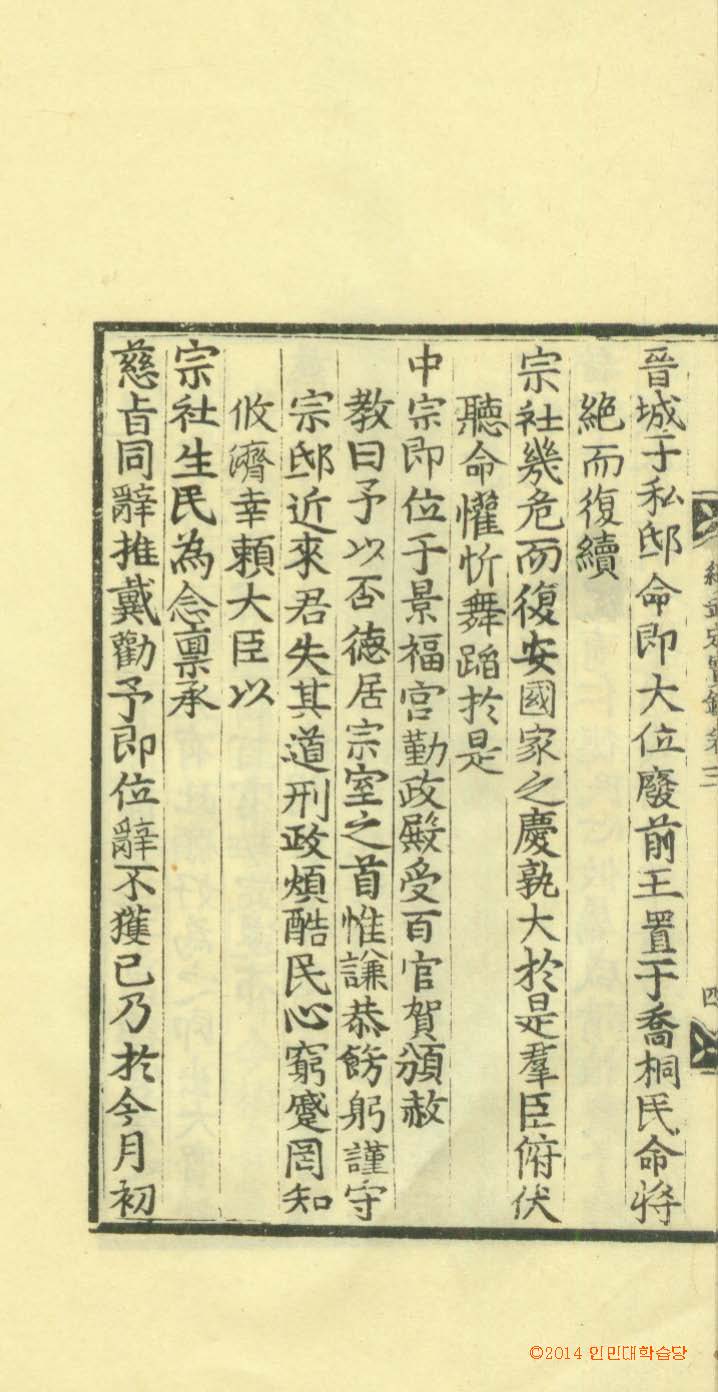 四
晉城于私邸命即大位廢前王置于喬桐民命將
絶而復續
宗社幾危而復安國家之慶孰大於是羣臣俯伏
聽命懽忻舞蹈於是
中宗即位于景福宮勤政殿受百官賀頒赦
教曰予以否德居宗室之首惟謙恭飭躬謹守
宗邸近來君失其道刑政煩酷民心窮蹙罔知
攸濟幸賴大臣以
宗社生民為念禀承
慈旨同辭推戴勸予即位辭不獲已乃於今月初
©2014 인민대학습당